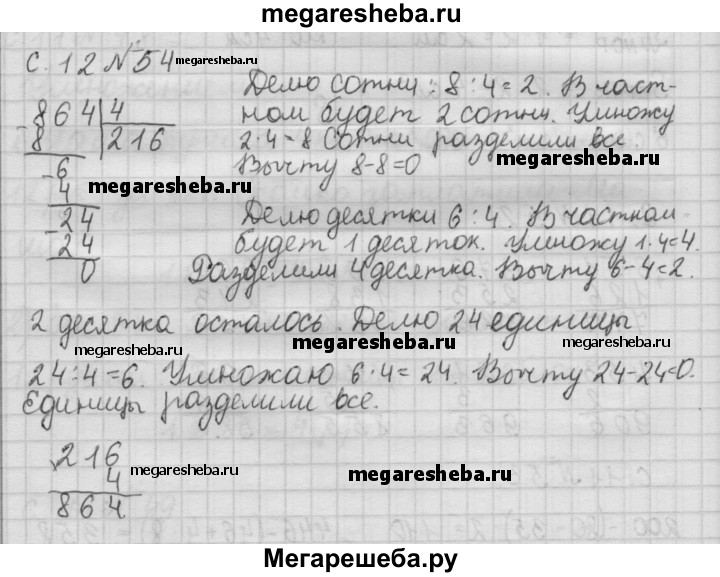 megaresheba.ru
с. 12 № 54 megaresheba.ru
Делю сотни : 8 : 4 = 2. В част-
864 | 4 ном будет 2 сотни. Умножу
- 8 216 2 · 4 = 8 Сотни разделили все.
megaresheba.ru
- 6 Вычту 8-8=0
4 megaresheba.ru
- 24 Делю десятки 6 : 4. В частном
24 будет 1 десяток. Умножу 1·4=4.
0 Разделили 4 десятка. Вычту 6-4=2.
2 десятка осталось. Делю 24 единицы
megaresheba.ru megaresheba.ru megaresheba.ru
24:4=6. Умножаю 6·4=24. Вычту 24-24=0.
Единицы разделили все.
216
4 megaresheba.ru megaresheba.ru
864
Мегарешеба.ру